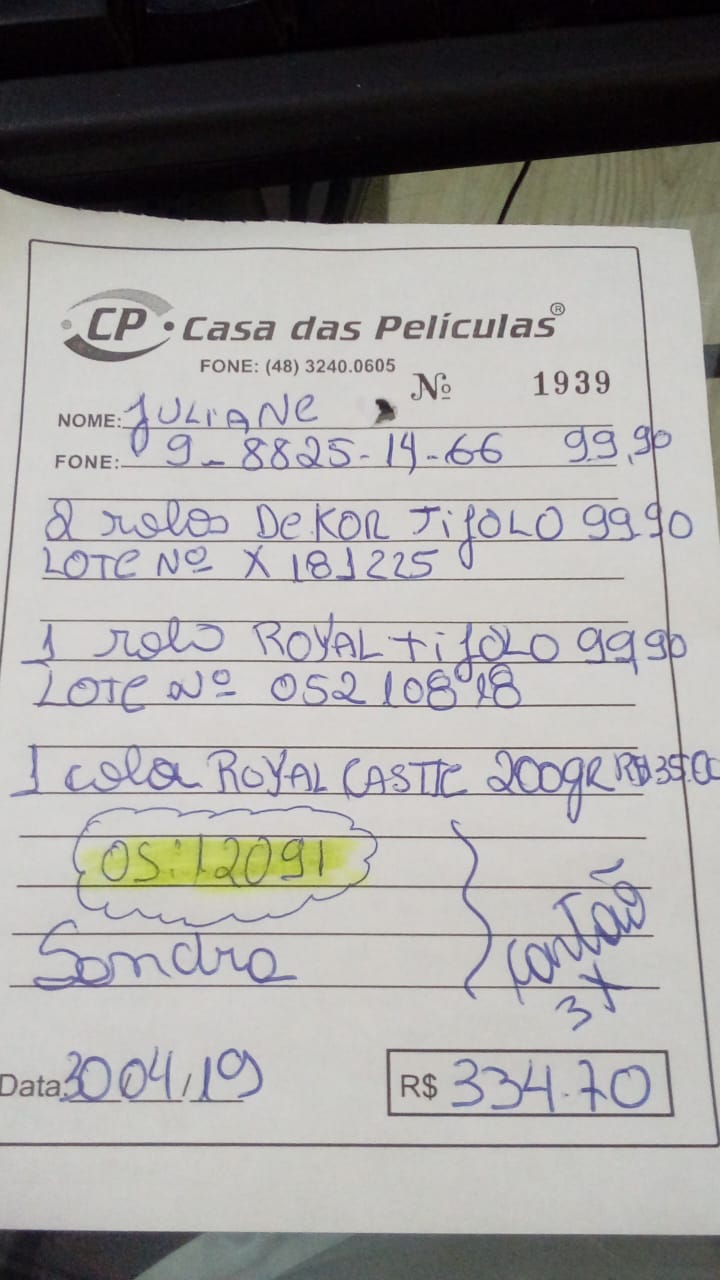 CP • Casa das Películas®
FONE: (48) 3240.0605
Nº 1939
NOME: JULIANE
FONE: 9-8825-14-66 99,90
2 rolos DEKOR TiJOLO 99.90
LOTE Nº X 181225
1 rolo ROYAL tiJOLO 99,90
LOTE Nº 052108918
1 cola ROYAL CASTIC 200gR R$35.00
OS: 12091
Sandra
Cartão
3x
Data 30 04/19
R$ 334.70